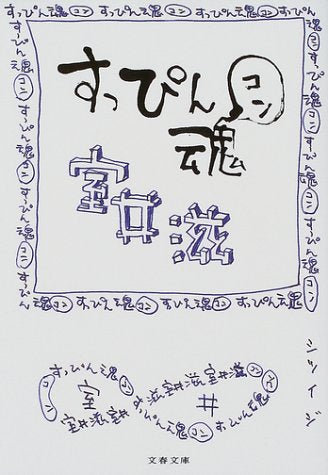 すっぴん魂コンすっぴん魂コンすっぴん魂コンすっぴん
すっぴん魂コンすっぴん魂コンすっぴん魂コンすっぴん
コンすっぴん魂コンすっぴん魂コンすっぴん魂コン
すっぴん
魂
コン
室井滋
魂コンすっぴん魂コンすっぴん魂コンすっぴん魂
シツイジ
すっぴん魂コン
室
室井滋室井
滋室井滋室井滋
井
すっぴん魂コンすっぴん
文春文庫